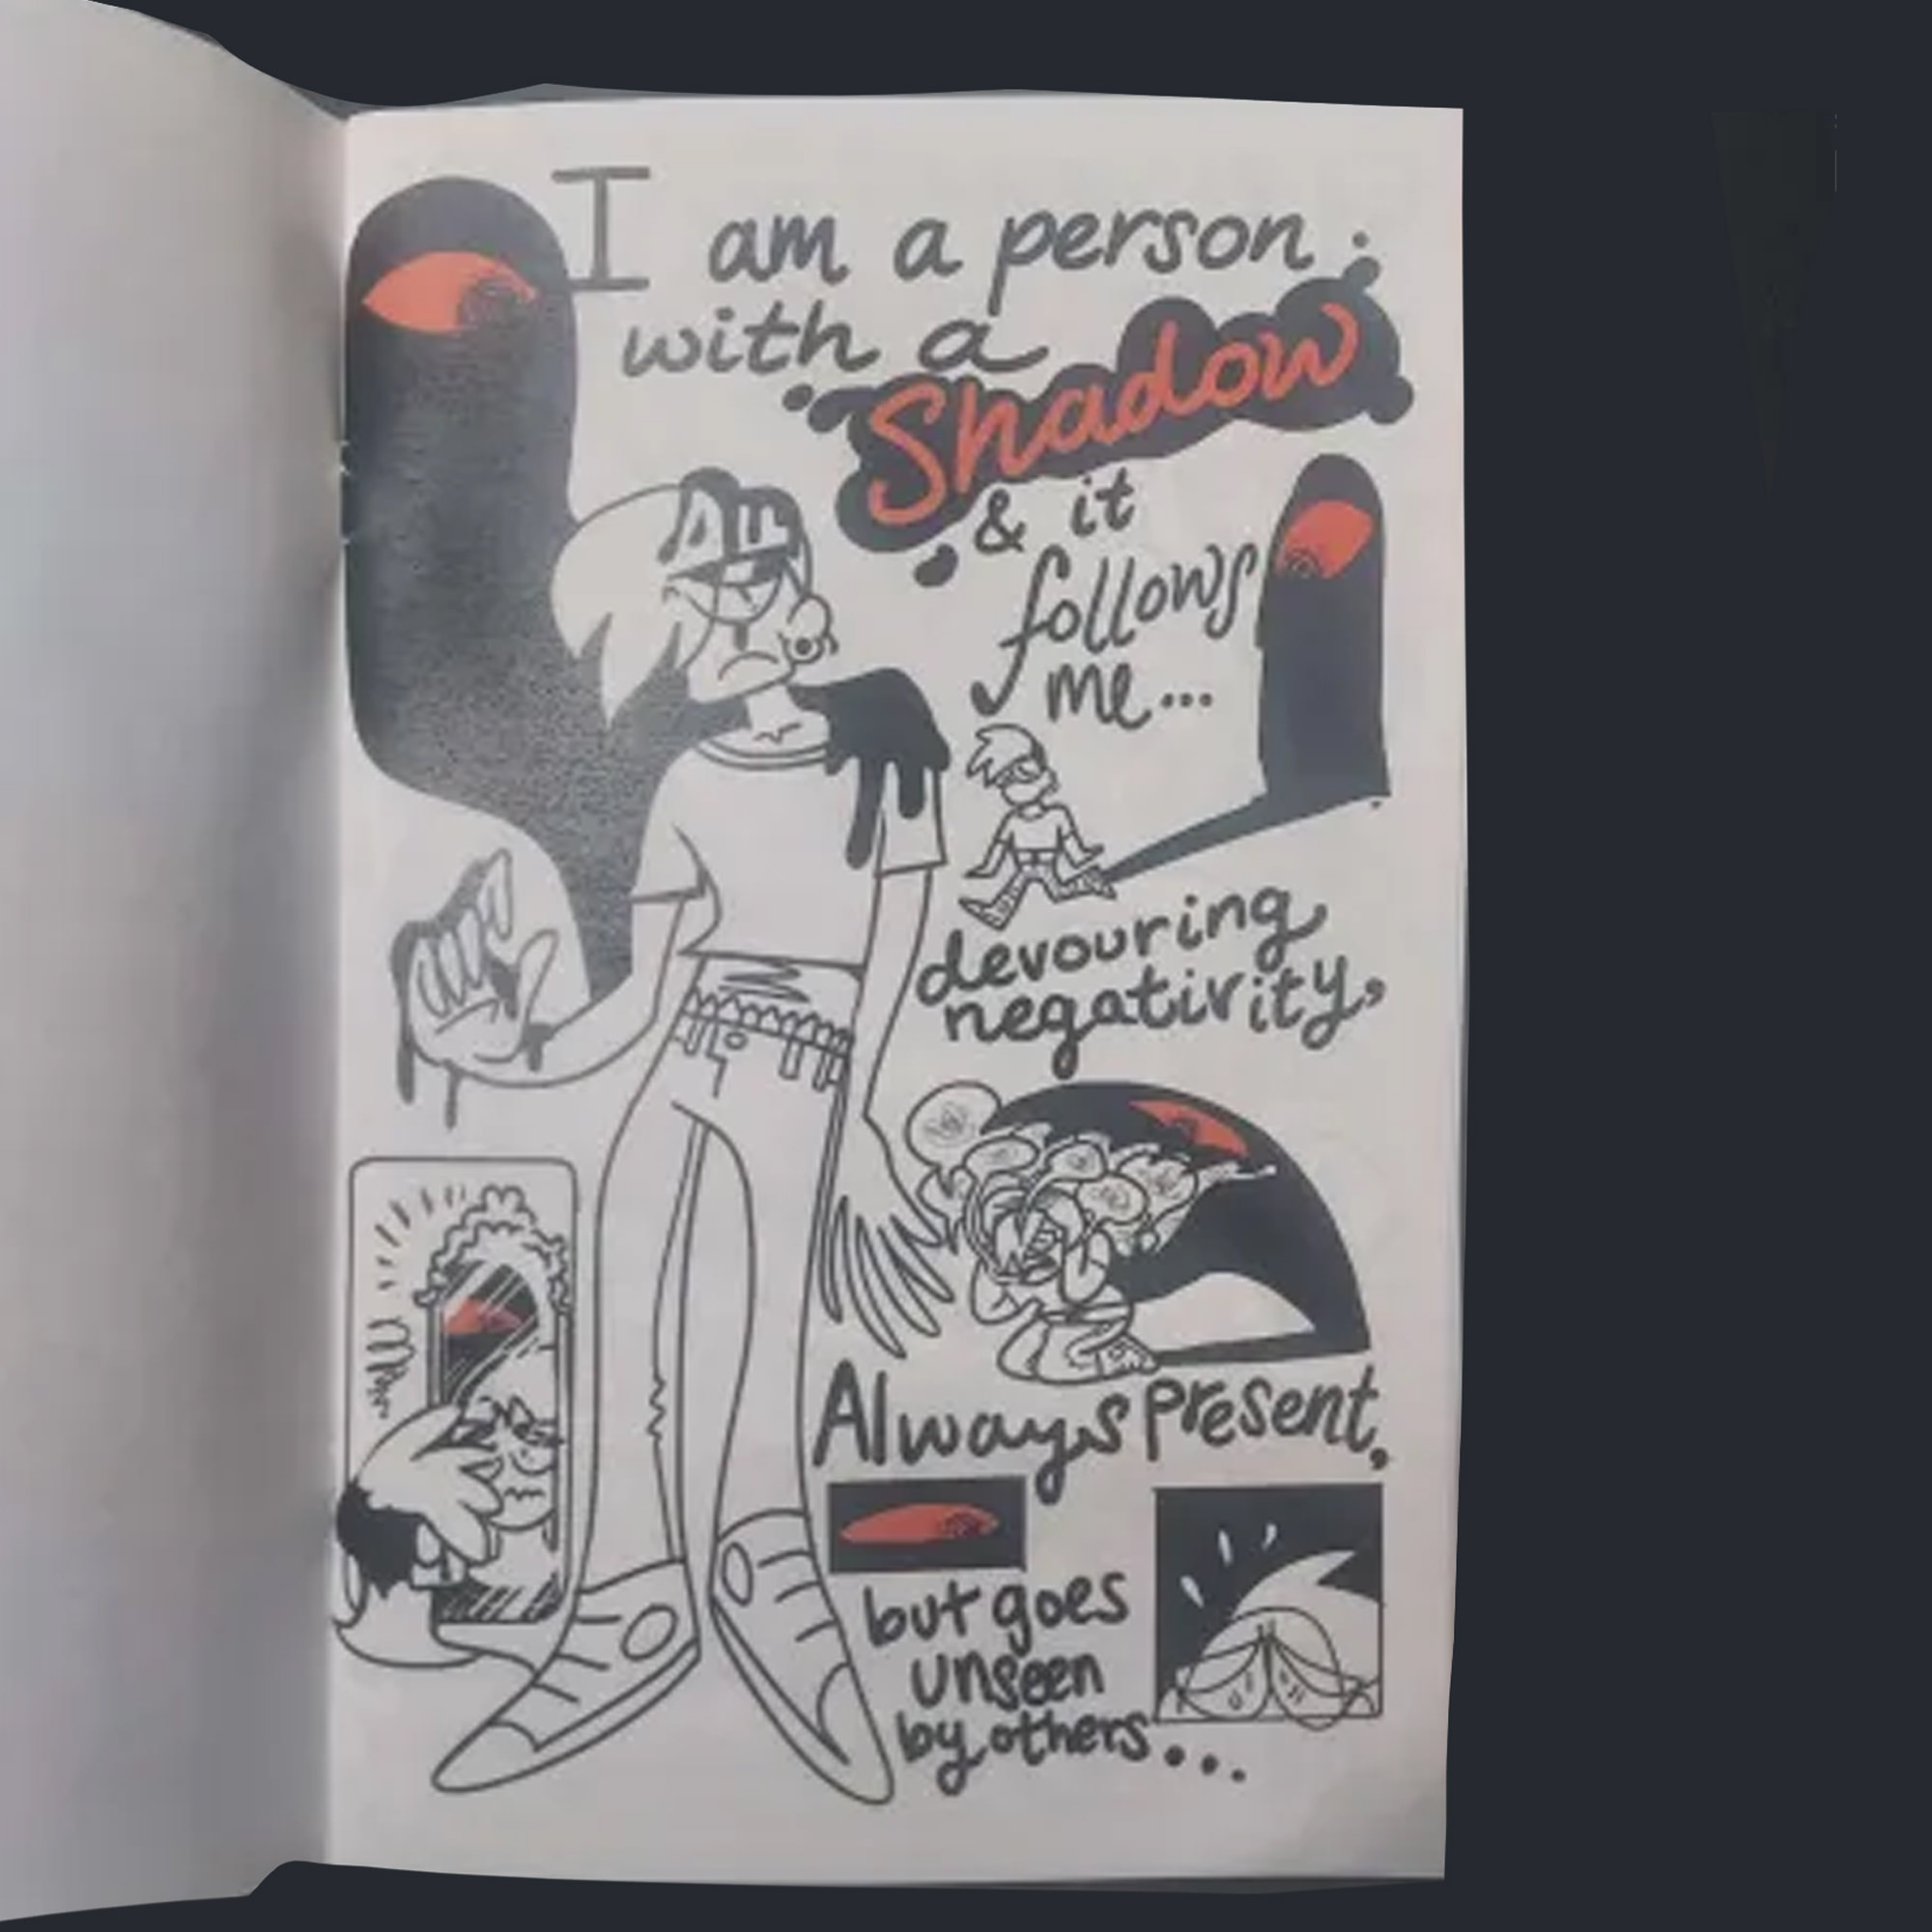 I am a person
with a
Shadow
& it
follows
me...
devouring
negativity,
Always present,
but goes
unseen
by others...